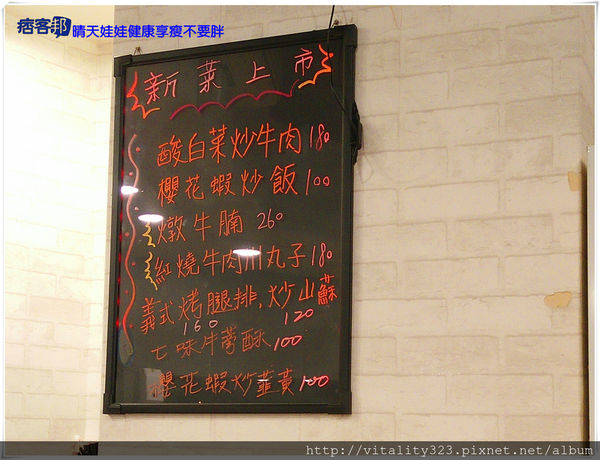 痞客邦 晴天娃娃健康享瘦不要胖
新菜上市
酸白菜炒牛肉180
櫻花蝦炒飯100
燉牛腩 260
紅燒牛肉川丸子180
義式烤腿排,炒山蘇
160 120
七味牛蒡酥100
櫻花蝦炒韮黃100
http://vitality323.pixnet.net/album